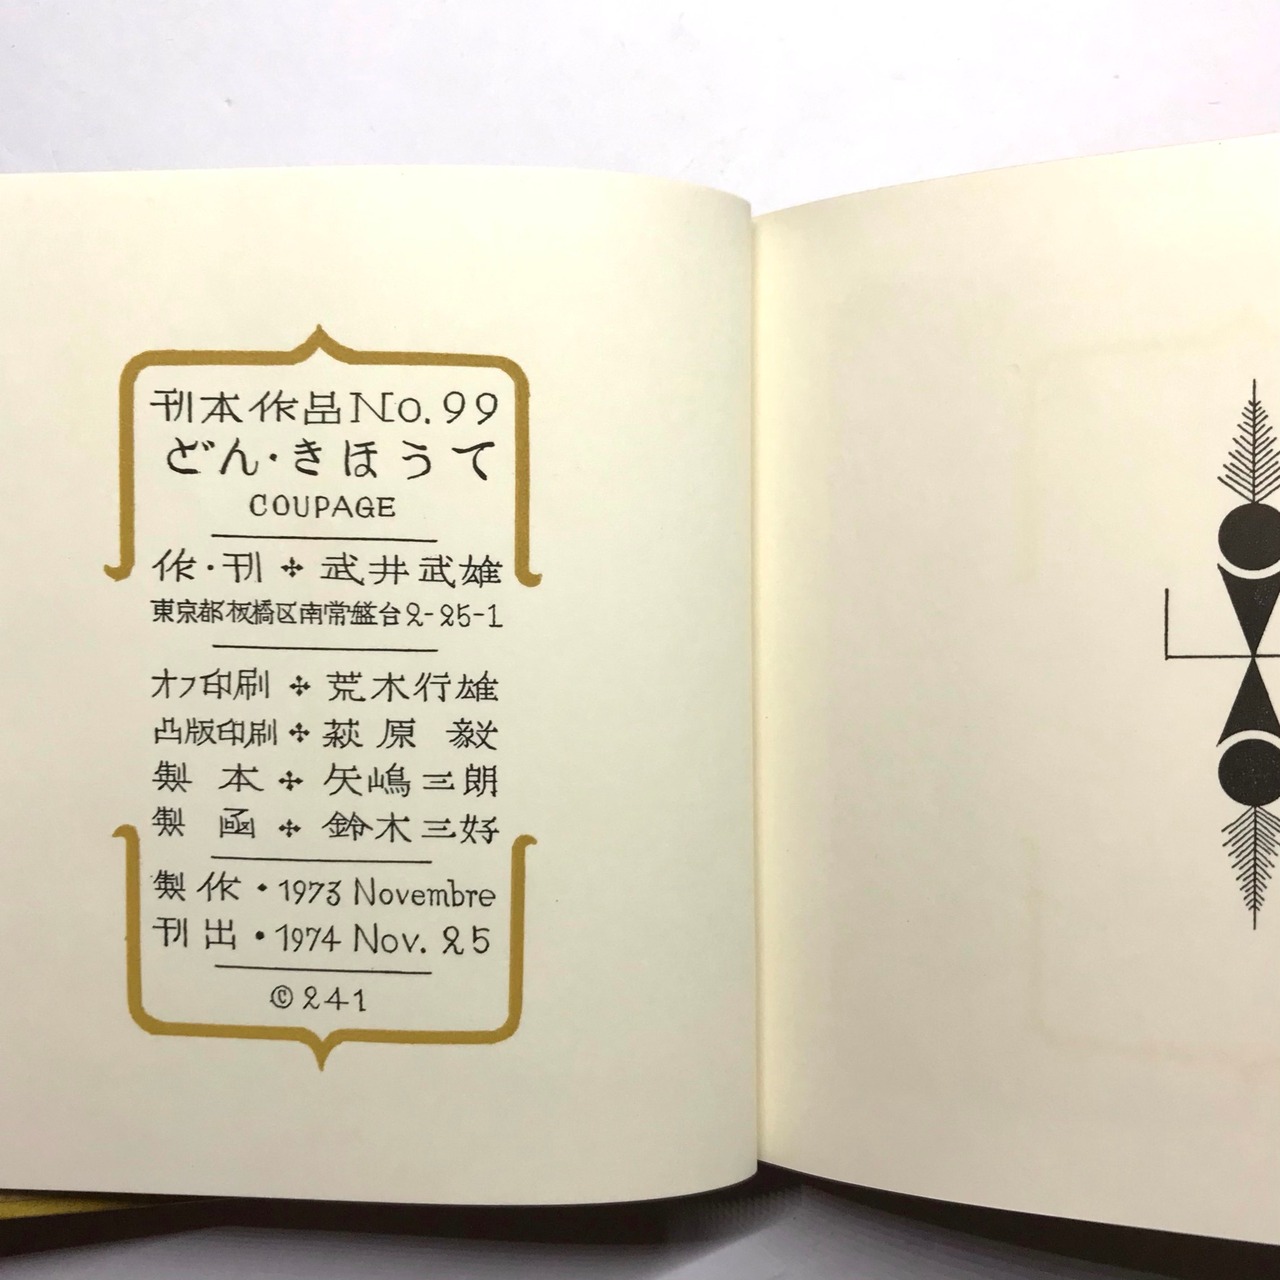 刊本作品No.99
どん・きほうて
COUPAGE
作・刊 ✣ 武井武雄
東京都板橋区南常盤台2-25-1
オフ印刷 ✣ 荒木行雄
凸版印刷 ✣ 萩原 毅
製 本 ✣ 矢嶋三朗
製 函 ✣ 鈴木三好
製作・1973 Novembre
刊出・1974 Nov. 25
© 241